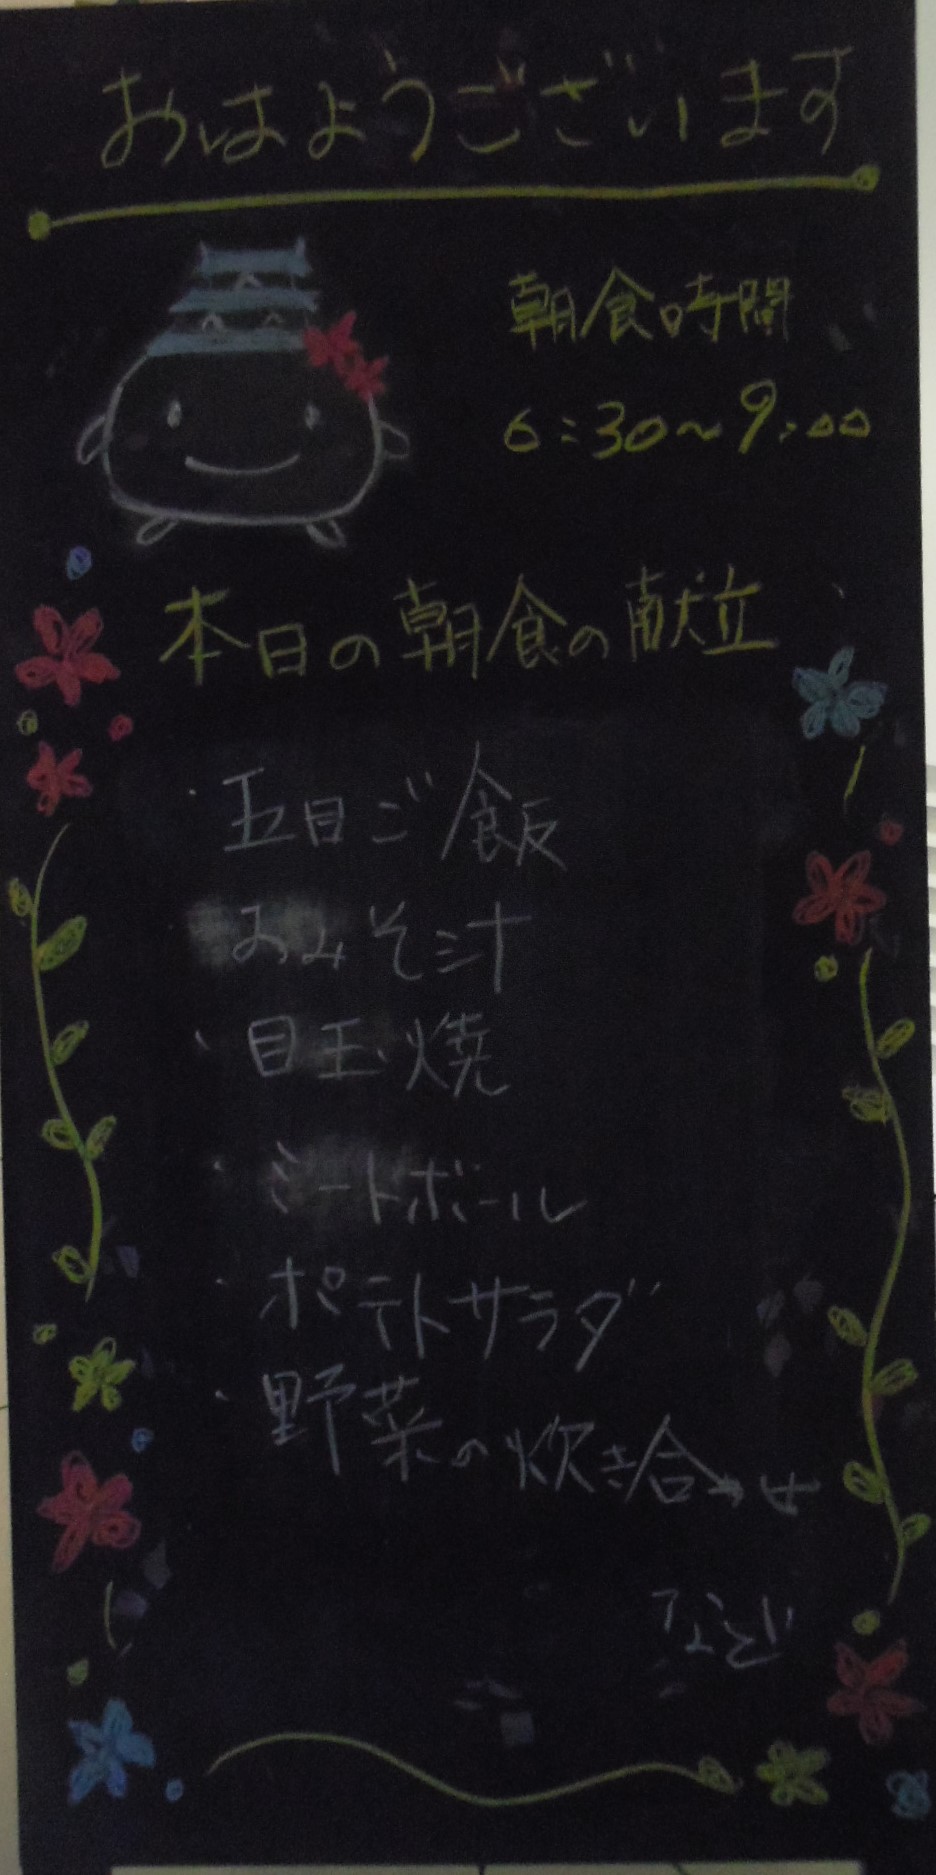 おはようございます
朝食時間
6:30~9:00
本日の朝食の献立
・五目ご飯
・おみそ汁
・目玉焼
・ミートボール
・ポテトサラダ
・野菜の炊き合わせ
など